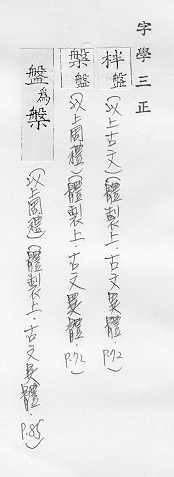 字學三正
柈盤(以上古文)(體製上·古文異體·P.72)
槃盤(以上周禮)(體製上·古文異體·P.72)
盤為槃(以上周禮)(體製上·古文異體·P.85)